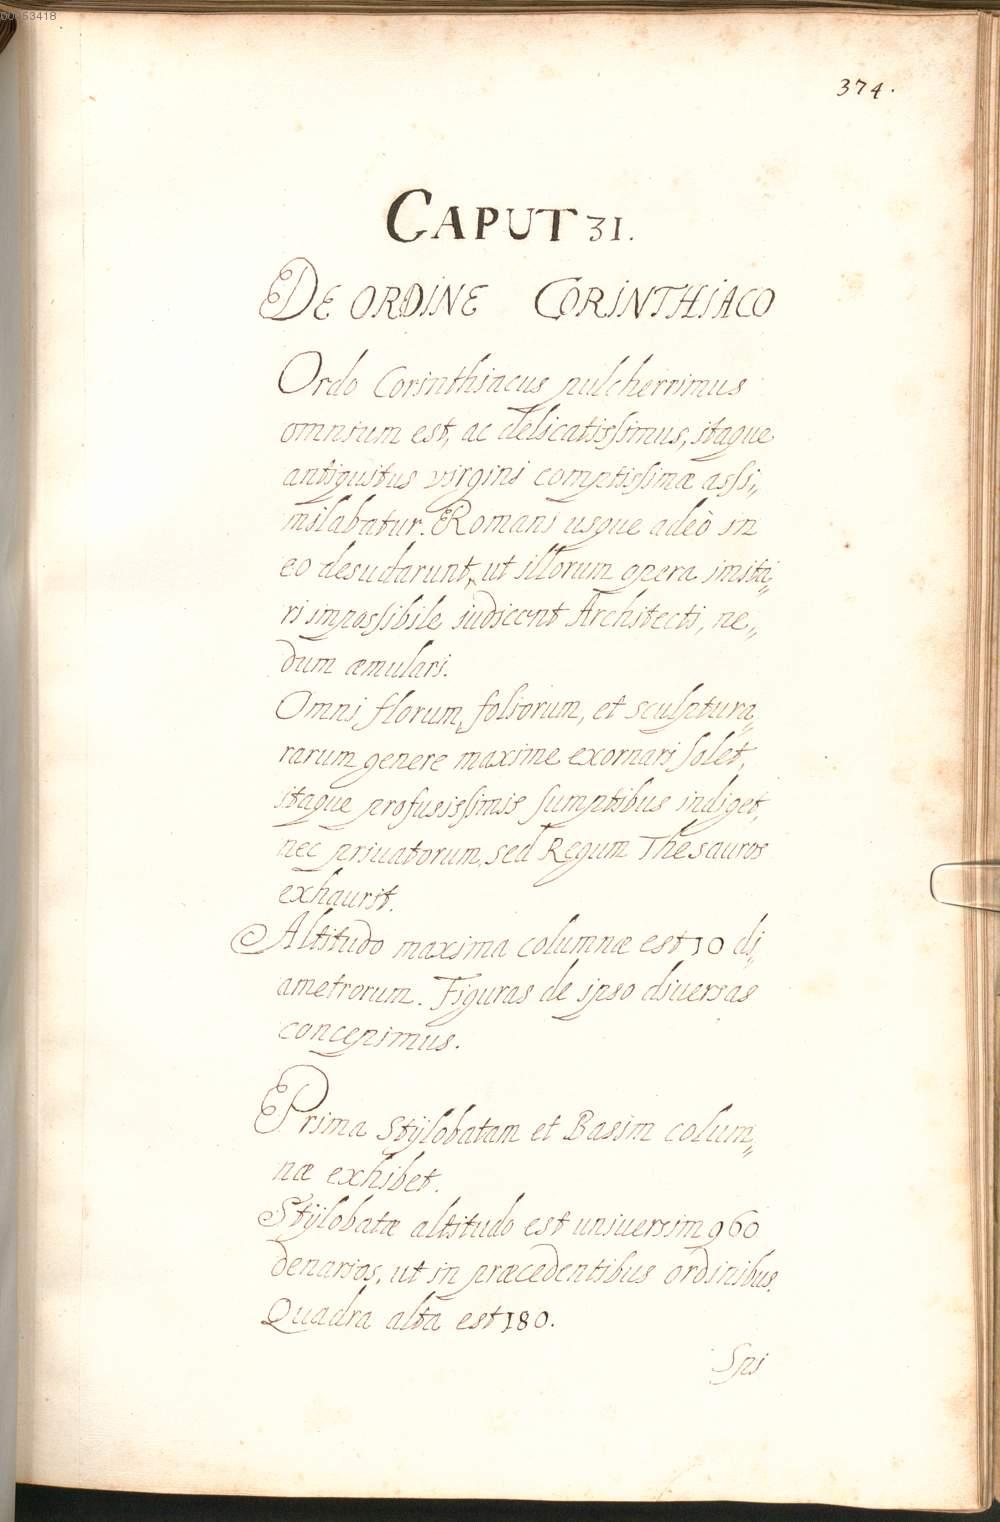 00053418
374.
CAPUT 31.
DE ORDINE CORINTHIACO
Ordo Corinthiacus pulcherrimus
omnium est, ac delicatissimus, itaque
antiquitus virgini comptissimæ assi„
milabatur. Romani usque adeò in
eo desudarunt, ut illorum opera imita„
ri impossibile iudicent Architecti, ne„
dum æmulari.
Omni florum, foliorum, et sculptura„
rarum genere maxime exornari solet,
itaque profusissimis sumptibus indiget,
nec priuatorum, sed Regum Thesauros
exhaurit.
Altitudo maxima columnæ est 10 di„
ametrorum. Figuras de ipso diuersas
concepimus.
Prima Stÿlobatam et Basim colum„
næ exhibet.
Stÿlobatæ altitudo est uniuersim 960
denarios, ut in præcedentibus ordinibus.
Quadra alta est 180.
Spi